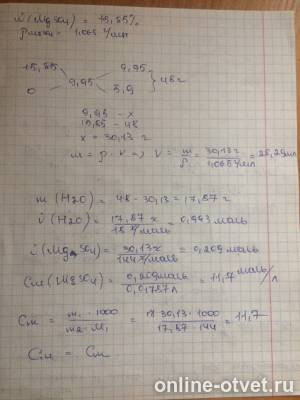 ω(MgSO4) = 15,85%
ρ = 1,065 г/мл
15,85 9,95
9,95 } 48 г
0 5,9
9,95 - x
15,85 - 48
x = 30,13 г
m = ρ · V => V = m/ρ = 30,13 г / 1,065 г/мл = 28,29 мл
m (H2O) = 48 - 30,13 = 17,87 г
ν (H2O) = 17,87 г / 18 г/моль = 0,993 моль
ν (MgSO4) = 30,13 г / 144 г/моль = 0,209 моль
Cм (MgSO4) = 0,209 моль / 0,0178 л = 11,7 моль/л
Cm = m1 · 1000 / m2 · M1 = 30,13 · 1000 / 17,87 · 144 = 11,7
Cм = Cm
online-otvet.ru